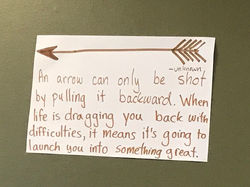 -unknown
An arrow can only be shot
by pulling it backward. When
life is dragging you back with
difficulties, it means it's going to
launch you into something great.